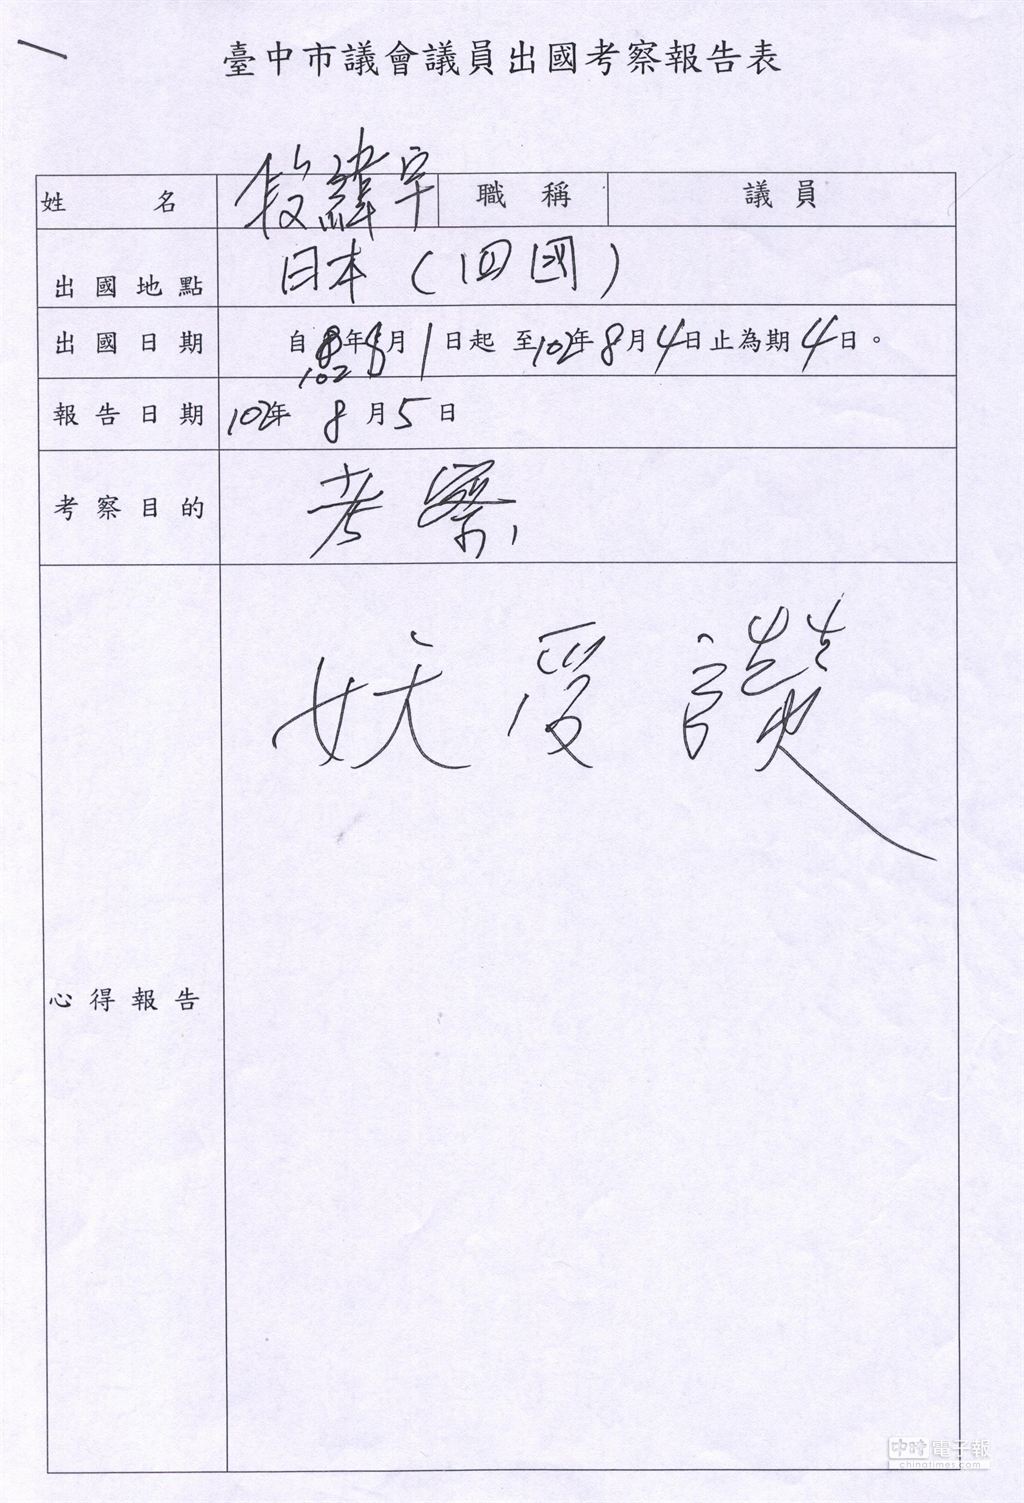 臺中市議會議員出國考察報告表
姓名 段緯宇 職稱 議員
出國地點 日本(四國)
出國日期 自102年8月1日起 至102年8月4日止為期4日。
報告日期 102年 8月5日
考察目的 考察
心得報告
妖受讚
中時電子報
chinatimes.com